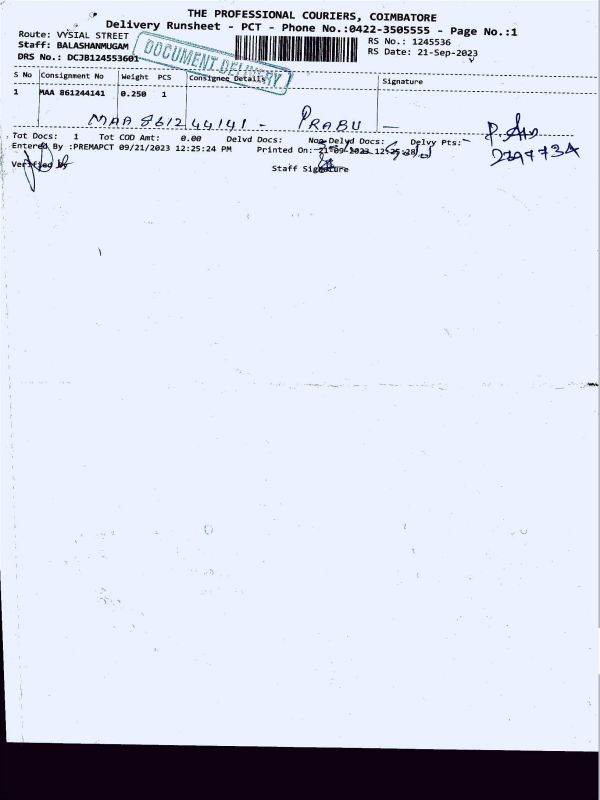 THE PROFESSIONAL COURIERS, COIMBATORE
Delivery Runsheet - PCT - Phone No.:0422-3505555 - Page No.:1
Route: VYSIAL STREET
Staff: BALASHANMUGAM
DRS No.: DCJB124553601
DOCUMENT DELIVERY
RS No.: 1245536
RS Date: 21-Sep-2023
S No Consignment No Weight PCS Consignee Details Signature
1 MAA 861244141 0.250 1
MAA 861244141 - PRABU -
Tot Docs: 1 Tot COD Amt: 0.00 Delvd Docs: Non Delvd Docs: Delvy Pts:
Entered By :PREMAPCT 09/21/2023 12:25:24 PM Printed On: 21-09-2023 12:25:28
Verified By
Staff Signature